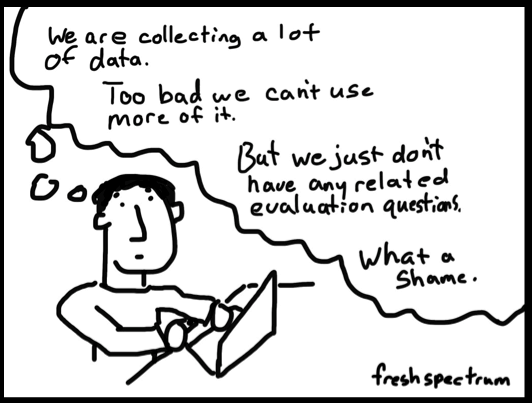 We are collecting a lot
of data.
Too bad we can't use
more of it.
But we just don't
have any related
evaluation questions.
What a
Shame.
freshspectrum